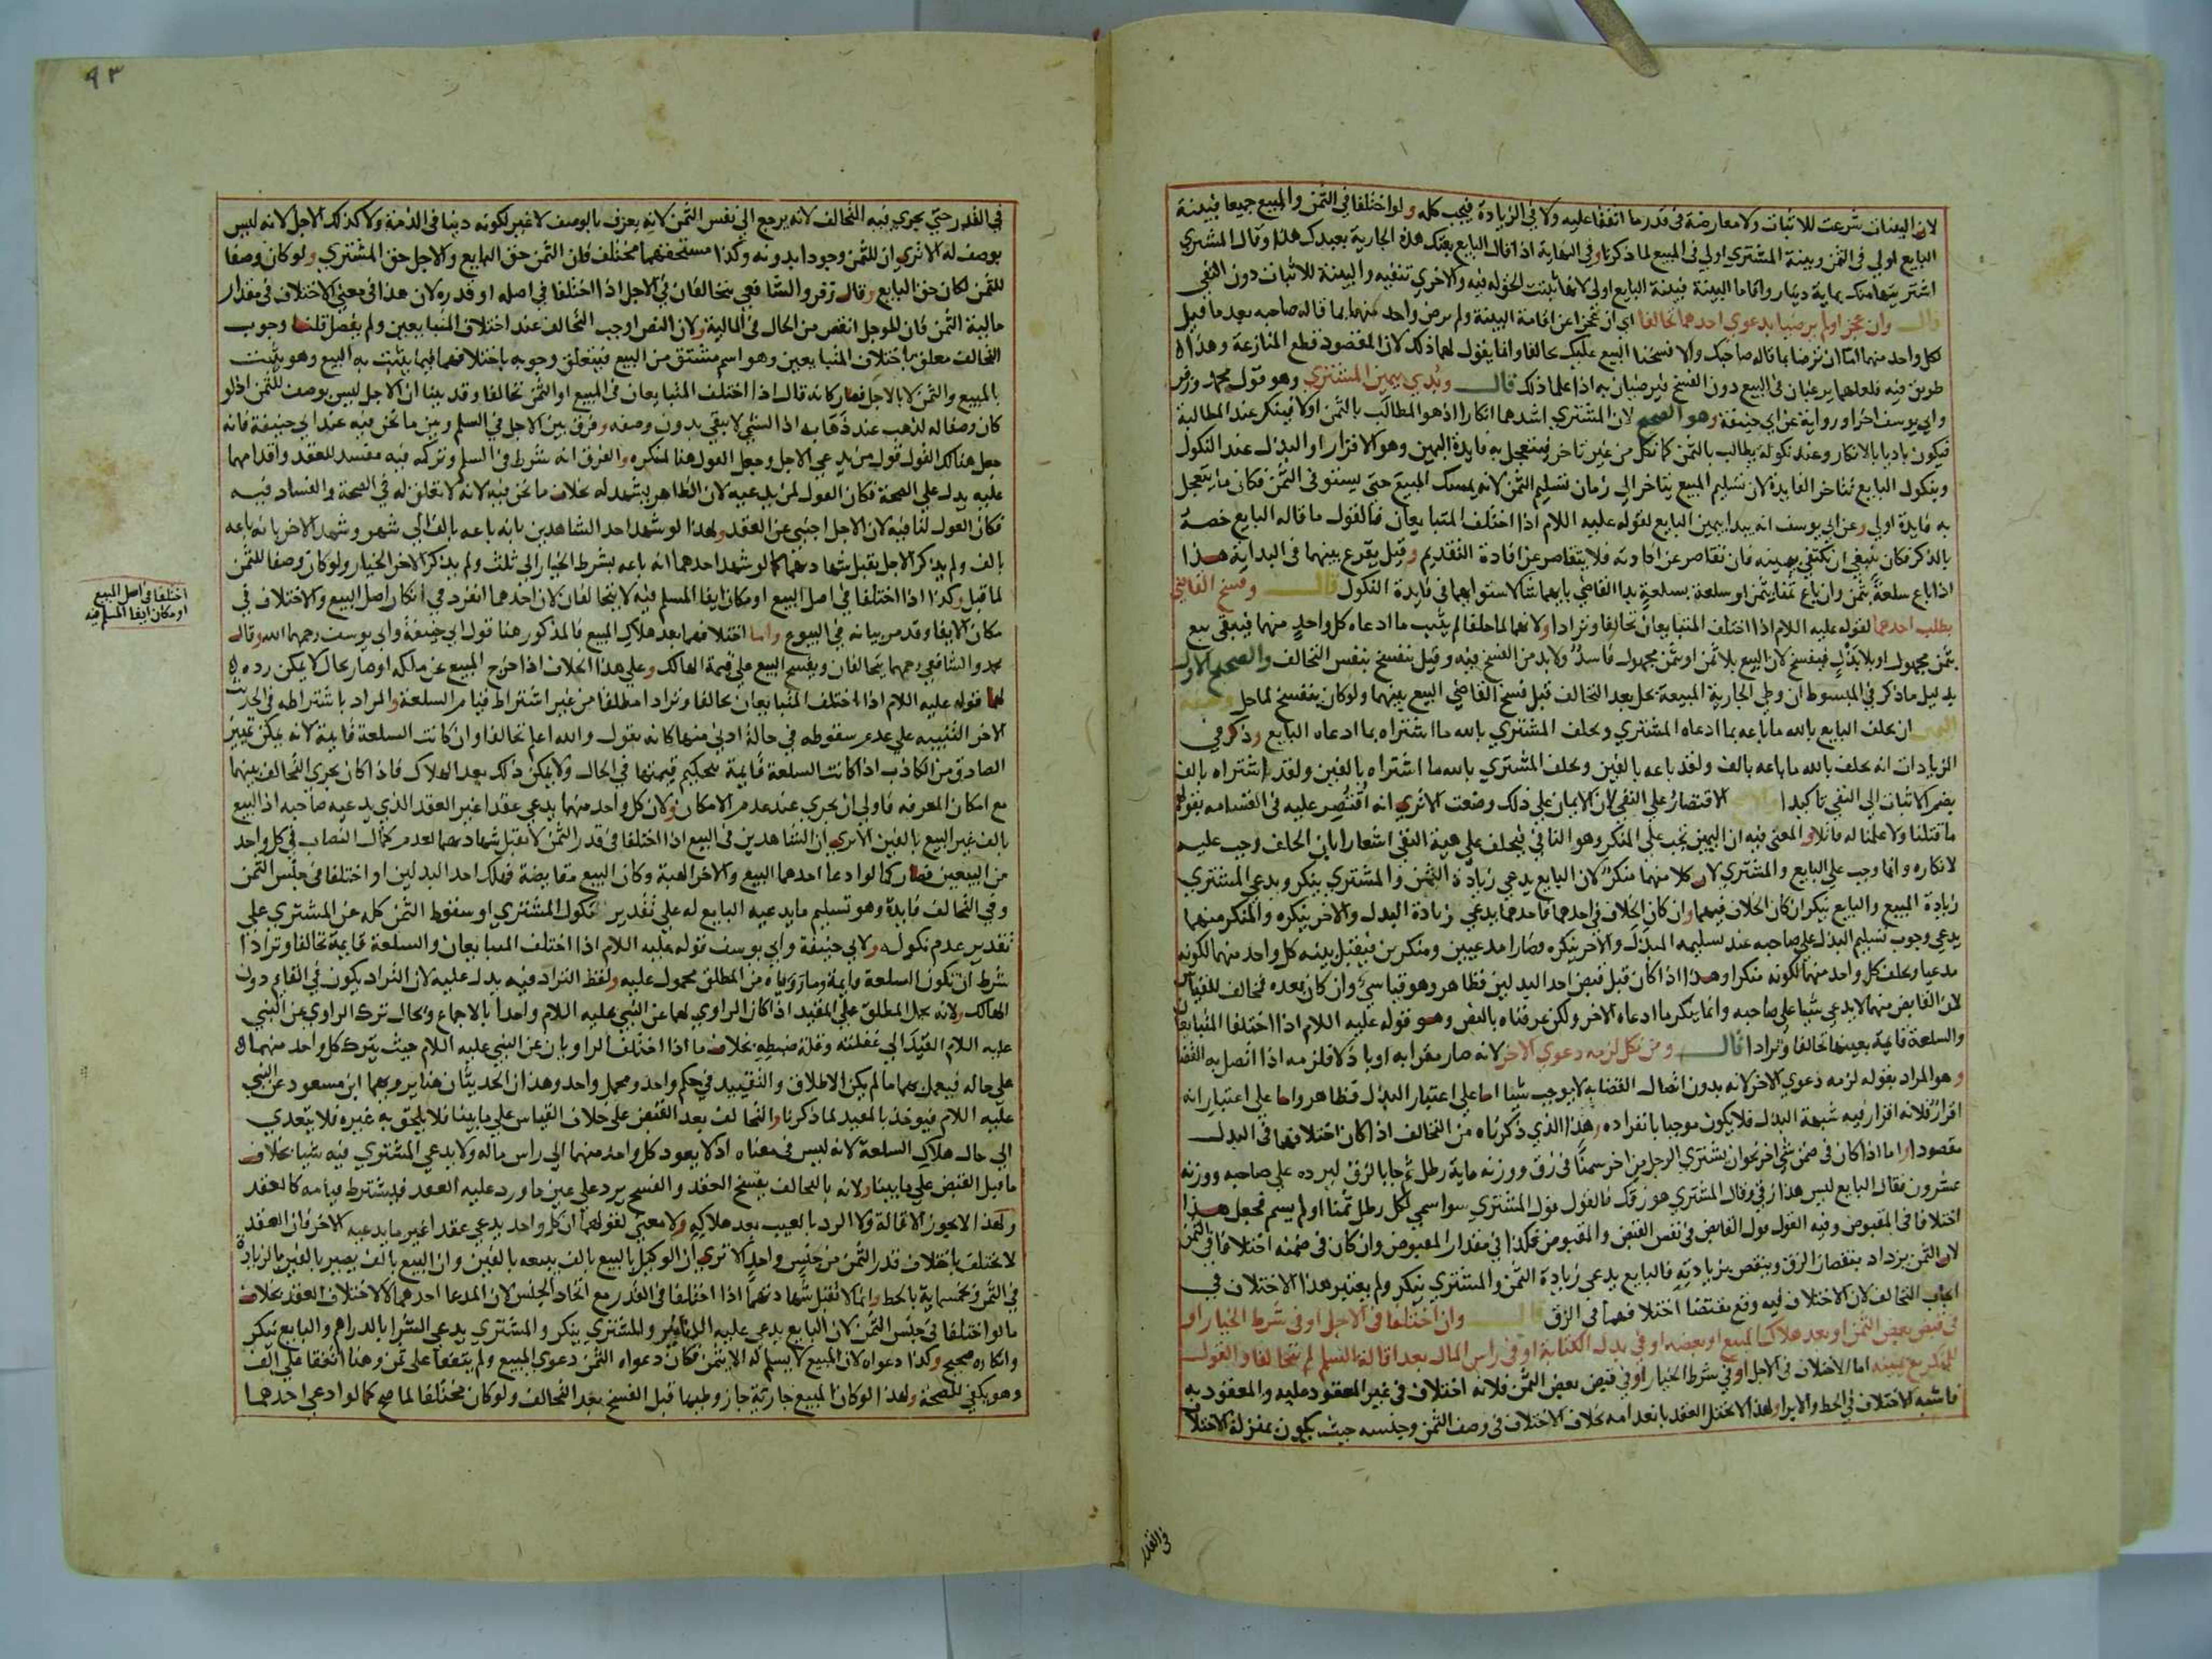 لان البينات شرعت للاثبات ولا معارضة في قدر ما اتفقا عليه ولا في الزيادة فيجب كله ولو اختلفا في الثمن والمبيع جميعا فبينة
البايع اولي في الثمن وبينة المشتري اولي في المبيع لما ذكرنا وفي النهاية اذا قال البايع بعتك هذه الجارية بعبدك هذا وقال المشتري
اشتريتها منك بماية دينار واقاما البينة فبينة البايع اولي لانها تثبت الحق له فيه والاخري تنفيه والبينة للاثبات دون النفي
قال وان عجزا ولم يرضيا بدعوي احدهما تحالفا اي ان عجزا عن اقامة البينة ولم يرض واحد منهما بما قاله صاحبه بعد ما قيل
لكل واحد منهما اما ان ترضا بما قاله صاحبك والا فسخنا البيع عليك تحالفا وانما يقول لهما ذلك لان المقصود قطع المنازعة وهذا
طريق فيه فلعلهما يرغبان في البيع دون الفسخ فيرضيان به اذا علما ذلك قال وبدي بيمين المشتري وهو قول محمد وزفر
وابي يوسف اخرا ورواية عن ابي حنيفة وهو الصحيح لان المشتري اشدهما انكارا اذ هو المطالب بالثمن اولا فينكر عند المطالبة
فيكون باديا بالانكار وعند نكوله يطالب بالثمن كما نكل من غير تاخر فيتعجل به فايدة اليمين وهو الاقرار او البذل عند النكول
وبنكول البايع تتاخر الفايدة لان تسليم المبيع يتاخر الي زمان تسليم الثمن لانه يمسك المبيع حتي يستوفي الثمن فكان ما يتعجل
به فايدة اولي وعن ابي يوسف انه يبدا بيمين البايع لقوله عليه اللام اذا اختلف المتبايعان فالقول ما قاله البايع خصه
بالذكر فكان ينبغي ان يكتفي بيمينه فان تقاصر عن افادته فلا يتقاصر عن افادة التقديم وقيل يقرع بينهما في البداية هذا
اذا باع سلعة بثمن وان باع ثمنا بثمن او سلعة بسلعة بدا القاضي بايهما شا لاستوايهما في فايدة النكول قال وفسخ القاضي
بطلب احدهما لقوله عليه اللام اذا اختلف المتبايعان تحالفا وترادا ولانهما لما حلفا لم يثبت ما ادعاه كل واحد منهما فيبقي بيع
بثمن مجهول او بلا بدل فيفسخ لان البيع بلا ثمن او بثمن مجهول فاسد ولا بد من الفسخ فيه وقيل ينفسخ بنفس التحالف والصحيح الاول
بدليل ما ذكر في المبسوط ان وطي الجارية المبيعة يحل بعد التحالف قبل فسخ القاضي البيع بينهما ولو كان ينفسخ لما حل وصفة
اليمين ان يحلف البايع بالله ما باعه بما ادعاه المشتري ويحلف المشتري بالله ما اشتراه بما ادعاه البايع وذكر في
الزيادات انه يحلف بالله ما باعه بالف ولقد باعه بالفين ويحلف المشتري بالله ما اشتراه بالفين ولقد اشتراه بالف
يضم الاثبات الي النفي تاكيدا والاصح الاقتصار علي النفي لان الايمان علي ذلك وضعت الا تري انه اقتصر عليه في القسامه بقولهم
ما قتلنا ولا علمنا له قاتلا والمعني فيه ان اليمين تجب علي المنكر وهو النافي فيحلف علي هية النفي اشعارا بان الحلف وجب عليه
لانكاره وانما وجب علي البايع والمشتري لان كلا منهما منكر لان البايع يدعي زيادة الثمن والمشتري ينكر ويدعي المشتري
زيادة المبيع والبايع ينكر ان كان الخلاف فيهما وان كان الخلاف في احدهما فاحدهما يدعي زيادة البدل والاخر ينكره والمنكر منهما
يدعي وجوب تسليم البدل علي صاحبه عند تسليمه المبدل والاخر ينكره فصارا مدعيين ومنكرين فيقبل بينه كل واحد منهما لكونه
مدعيا ويحلف كل واحد منهما لكونه منكرا وهذا اذا كان قبل قبض احد البدلين فظاهر وهو قياسي وان كان بعده فمخالف للقياس
لان القابض منهما لا يدعي شيا علي صاحبه وانما ينكر ما ادعاه الاخر ولكن عرفناه بالنص وهو قوله عليه اللام اذا اختلفا المتبايعان
والسلعة قايمة بعينها تحالفا وترادا قال ومن نكل لزمه دعوي الاخر لانه صار مقرا به او باذلا فلزمه اذا اتصل به القضا
وهو المراد بقوله لزمه دعوي الاخر لانه بدون اتصال القضا به لا يوجب شيا اما علي اعتبار البذل فظاهر واما علي اعتبار انه
اقرار فلانه اقرار فيه شبهة البذل فلا يكون موجبا بانفراده وهذا الذي ذكرناه من التحالف اذا كان اختلافهما في البدل
مقصودا واما اذا كان في ضمن شي اخر نحو ان يشتري الرجل من اخر سمنا في زق ووزنه ماية رطل ثم جا بالزق ليرده علي صاحبه ووزنه
عشرون فقال البايع ليس هذا زقي وقال المشتري هو زقك فالقول قول المشتري سوا سمي لكل رطل ثمنا اولم يسم فجعل هذا
اختلافا في المقبوض وفيه القول قول القابض في نفس القبض والمقبوض فكذا في مقدار المقبوض وان كان في ضمنه اختلافا في الثمن
لان الثمن يزداد بنقصان الزق وينقص بزيادته فالبايع يدعي زيادة الثمن والمشتري ينكر ولم يعتبر هذا الاختلاف في
ايجاب التحالف لان الاختلاف فيه وقع بمقتضا اختلافهما في الزق قال وان اختلفا في الاجل او في شرط الخيار او
في قبض بعض الثمن او بعد هلاك المبيع او بعضه او في بدل الكتابة او في راس المال بعد اقالة السلم لم يتحالفا والقول
للمنكر مع يمينه اما الاختلاف في الاجل او في شرط الخيار او في قبض بعض الثمن فلانه اختلاف في غير المعقود عليه والمعقود به
فاشبه الاختلاف في الحط والابرا وهذا لا يختل العقد بانعدامه بخلاف الاختلاف في وصف الثمن وجنسه حيث يكون بمنزلة الاختلاف
في القدر
٩٣
في القدر حتي يجري فيه التحالف لانه يرجع الي نفس الثمن لانه يعرف بالوصف لا غير لكونه دينا في الذمة ولا كذلك الاجل لانه ليس
بوصف له الا تري ان للثمن وجودا بدونه وكذا مستحقهما مختلف فان الثمن حق البايع والاجل حق المشتري ولو كان وصفا
للثمن لكان حق البايع وقال زفر والشافعي يتحالفان في الاجل اذا اختلفا في اصله او قدره لان هذا في معني الاختلاف في مقدار
مالية الثمن فان الموجل انقص من الحال في المالية ولان النص اوجب التحالف عند اختلاف المتبايعين ولم يفصل قلنا وجوب
التحالف معلق باختلاف المتبايعين وهو اسم مشتق من البيع فيتعلق وجوبه باختلافهما فيما يثبت به البيع وهو يثبت
بالمبيع والثمن لا بالاجل فصار كانه قال اذا اختلف المتبايعان في المبيع او الثمن تحالفا وقد بينا ان الاجل ليس بوصف للثمن اذ لو
كان وصفا له لذهب عند ذهابه اذ الشي لا يبقي بدون وصفه وفرق بين الاجل في السلم وبين ما نحن فيه عند ابي حنيفة فانه
جعل هنالك القول قول من يدعي الاجل وجعل القول هنا لمنكره والفرق انه شرط في السلم وتركه فيه مفسد للعقد واقدامهما
عليه يدل علي الصحة فكان القول لمن يدعيه لان الظاهر يشهد له بخلاف ما نحن فيه لانه لا تعلق له في الصحة والفساد فيه
فكان القول لنافيه لان الاجل اجنبي عن العقد ولهذا لو شهد احد الشاهدين بانه باعه بالف الي شهر وشهد الاخر بانه باعه
بالف ولم يذكر الاجل يقبل شهادتهما كما لو شهد احدهما انه باعه بشرط الخيار الي ثلث ولم يذكر الاخر الخيار ولو كان وصفا للثمن
لما قبل وكذا اذا اختلفا في اصل البيع او مكان ايفا المسلم فيه لا يتحالفان لان احدهما انفرد في انكار اصل البيع والاختلاف في
مكان الايفا وقد مر بيانه في البيوع واما اختلافهما بعد هلاك المبيع فالمذكور هنا قول ابي حنيفة وابي يوسف رحمهما الله وقال
محمد والشافعي رحمهما يتحالفان ويفسخ البيع علي قيمة الهالك وعلي هذا الخلاف اذا خرج المبيع عن ملكه او صار بحال لا يمكن رده
لهما قوله عليه اللام اذا اختلف المتبايعان تحالفا وترادا مطلقا من غير اشتراط قيام السلعة والمراد باشتراطه في الحديث
الاخر التنبيه علي عدم سقوطه في حالة ادني منها كانه يقول والله اعلم تحالفا وان كانت السلعة قايمة لانه يمكن تمييز
الصادق من الكاذب اذا كانت السلعة قايمة بتحكيم قيمتها في الحال ولا يمكن ذلك بعد الهلاك فاذا كان يجري التحالف بينهما
مع امكان المعرفه فاولي ان يجري عند عدم الامكان ولان كل واحد منهما يدعي عقدا غير العقد الذي يدعيه صاحبه اذ البيع
بالف غير البيع بالفين الا تري ان الشاهدين في البيع اذا اختلفا في قدر الثمن لا تقبل شهادتهما لعدم كمال النصاب في كل واحد
من البيعين فصار كما لو ادعا احدهما البيع والاخر الهبة وكان البيع مقايضة فهلك احد البدلين او اختلفا في جنس الثمن
وفي التحالف فايدة وهو تسليم ما يدعيه البايع له علي تقدير نكول المشتري او سقوط الثمن كله عن المشتري علي
تقدير عدم نكوله ولابي حنيفة وابي يوسف قوله عليه اللام اذا اختلف المتبايعان والسلعة قايمة تحالفا وترادا
شرط ان تكون السلعة قايمة وما روياه من المطلق محمول عليه ولفظ التراد فيه يدل عليه لان التراد يكون في القايم دون
الهالك ولانه يحمل المطلق علي المقيد اذا كان الراوي لهما عن النبي عليه اللام واحدا بالاجماع ويحال ترك الراوي عن النبي
عليه اللام القيد الي غفلته وقلة ضبطه بخلاف ما اذا اختلف الراويان عن النبي عليه اللام حيث يترك كل واحد منهما
علي حاله فيعمل بهما ما لم يكن الاطلاق والتقييد في حكم واحد ومحمل واحد وهذان الحديثان هنا يرويهما ابن مسعود عن النبي
عليه اللام فيوخذ بالمقيد لما ذكرنا والتحالف بعد القبض علي خلاف القياس علي ما بينا فلا يلحق به غيره فلا يتعدي
الي حال هلاك السلعة لانه ليس في معناه اذ لا يعود كل واحد منهما الي راس ماله ولا يدعي المشتري فيه شيا بخلاف
ما قبل القبض علي ما بينا ولانه بالتحالف يفسخ العقد والفسخ يرد علي عين ما ورد عليه العقد فيشترط قيامه كالعقد
ولهذا لا يجوز الاقالة ولا الرد بالعيب بعد هلاكه ولا معني لقولهما ان كل واحد يدعي عقدا غير ما يدعيه الاخر فان العقد
لا يختلف باختلاف قدر الثمن من جنس واحد الا تري ان الوكيل بالبيع بالف يبيعه بالفين وان البيع بالف يصير بالفين بالزيادة
في الثمن وبخمسماية بالحط وانما لا تقبل شهادتهما اذا اختلفا في القدر مع اتحاد الجنس لان المدعا احدهما لا لاختلاف العقد بخلاف
ما لو اختلفا في جنس الثمن لان البايع يدعي عليه الدنانير والمشتري ينكر والمشتري يدعي الشرا بالدراهم والبايع ينكر
وانكاره صحيح وكذا دعواه لان المبيع لا يسلم له الا بثمن فكان دعواه الثمن دعوي المبيع ولم يتفقا علي ثمن وهنا اتفقا علي الف
وهو يكفي للصحة ولهذا لو كان المبيع جارية جاز وطيها قبل الفسخ بعد التحالف ولو كان مختلفا لما صح كما لو ادعي احدهما
اختلفا في اصل البيع
او مكان ايفا المسلم فيه